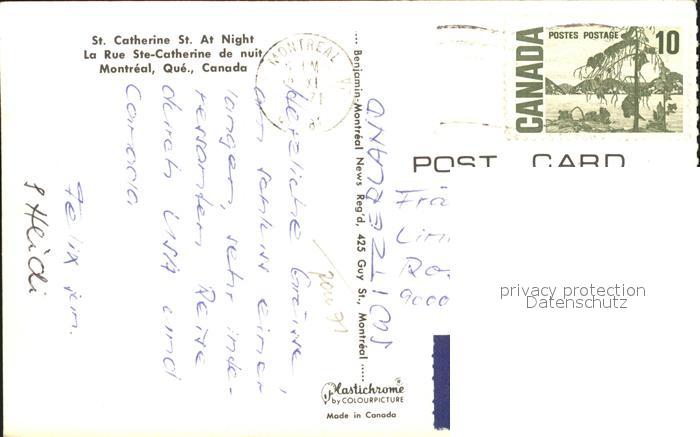 St. Catherine St. At Night
La Rue Ste-Catherine de nuit
Montréal, Qué., Canada
MONTREAL
CANADA
POSTES POSTAGE
10
POST CARD
Benjamin-Montréal News Reg'd, 425 Guy St., Montréal
Herzliche Grüsse,
am schluss einer
langen, sehr inte-
ressanten Reise
durch USA und
Canada.
Felix jun.
& Heidi
SWITZERLAND
Frä
Lin
9000
privacy protection
Datenschutz
Plastichrome®
by COLOURPICTURE
Made in Canada